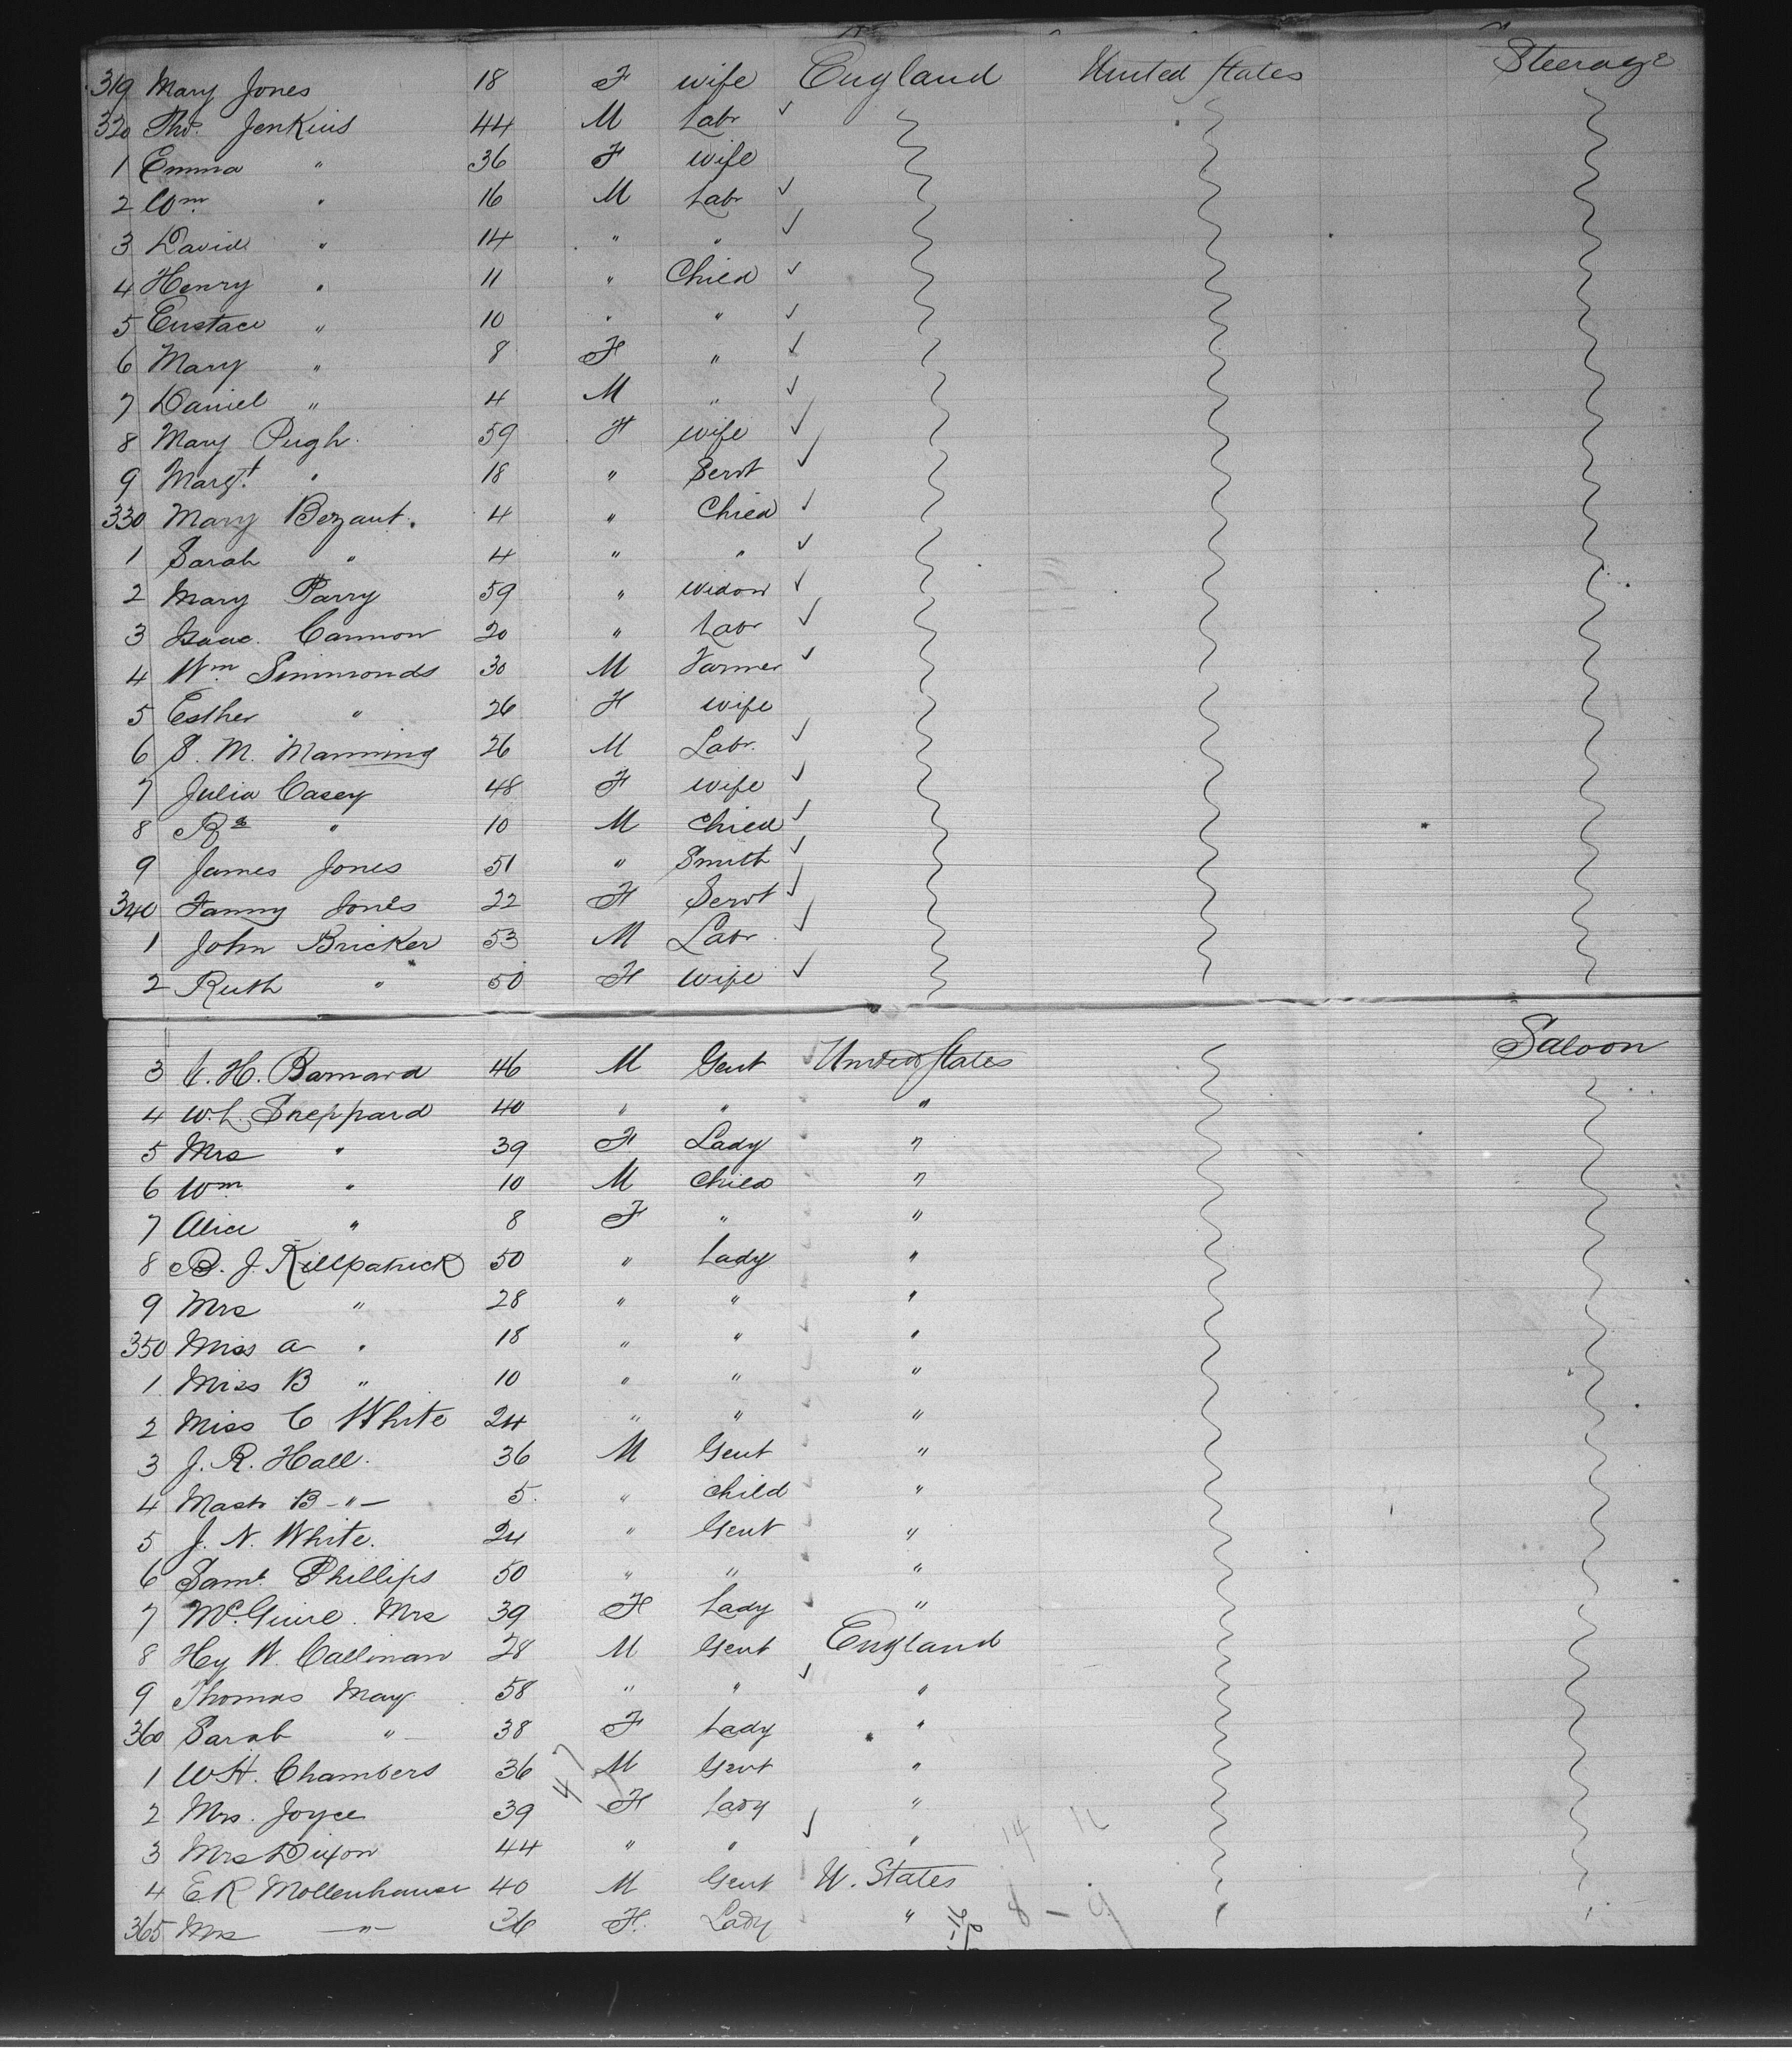 319 Mary Jones 18 F wife England United States Steerage
320 Thos. Jenkins 44 M Labr ✓
1 Emma " 36 F wife
2 Wm " 16 M Labr ✓
3 David " 14 " " ✓
4 Henry " 11 " Child ✓
5 Eustace " 10 " " ✓
6 Mary " 8 F " ✓
7 Daniel " 4 M " ✓
8 Mary Pugh 59 F wife ✓
9 Margt. " 18 " Servt ✓
330 Mary Bezant 4 " Child ✓
1 Sarah " 4 " " ✓
2 Mary Parry 59 " widow ✓
3 Isaac Cannon 20 " Labr ✓
4 Wm Simmonds 30 M Farmer ✓
5 Esther " 26 F wife
6 S. M. Manning 26 M Labr. ✓
7 Julia Casey 48 F wife ✓
8 " 10 M Child ✓
9 James Jones 51 " Smith ✓
340 Fanny Jones 22 F Servt ✓
1 John Bricker 53 M Labr ✓
2 Ruth " 50 F wife ✓
3 H. Barnard 46 M Gent United States Saloon
4 W. L. Sheppard 40 " " "
5 Mrs " 39 F Lady "
6 Wm " 10 M Child "
7 Alice " 8 F " "
8 B. J. Killpatrick 50 " Lady "
9 Mrs " 28 " " "
350 Miss A " 18 " " "
1 Miss B " 10 " " "
2 Miss C White 24 " " "
3 J. R. Hall. 36 M Gent "
4 Mastr B -"- 5 " child "
5 J. N. White. 24 " Gent "
6 Saml. Phillips 50 " " "
7 McGuire. Mrs 39 F Lady "
8 Hy W. Callinan 28 M Gent England
9 Thomas May 58 " " ✓ "
360 Sarah " 38 F Lady "
1 W H. Chambers 36 M Gent "
2 Mrs. Joyce 39 F Lady "
3 Mrs Dixon 44 " " ✓ "
4 E R Mollenhauer 40 M Gent U. States
365 Mrs -"- 36 F. Lady "
47
14
8 - 9